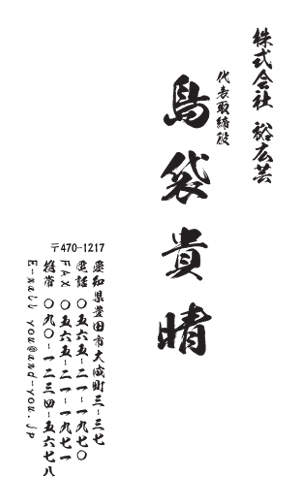 株式会社 裕広芸
代表取締役
島袋貴晴
〒470-1217
愛知県豊田市大成町三-三七
電話 〇五六五-二一-一九七〇
FAX 〇五六五-二一-一九七一
携帯 〇九〇-一二三四-五六七八
E-mail you@and-you.jp